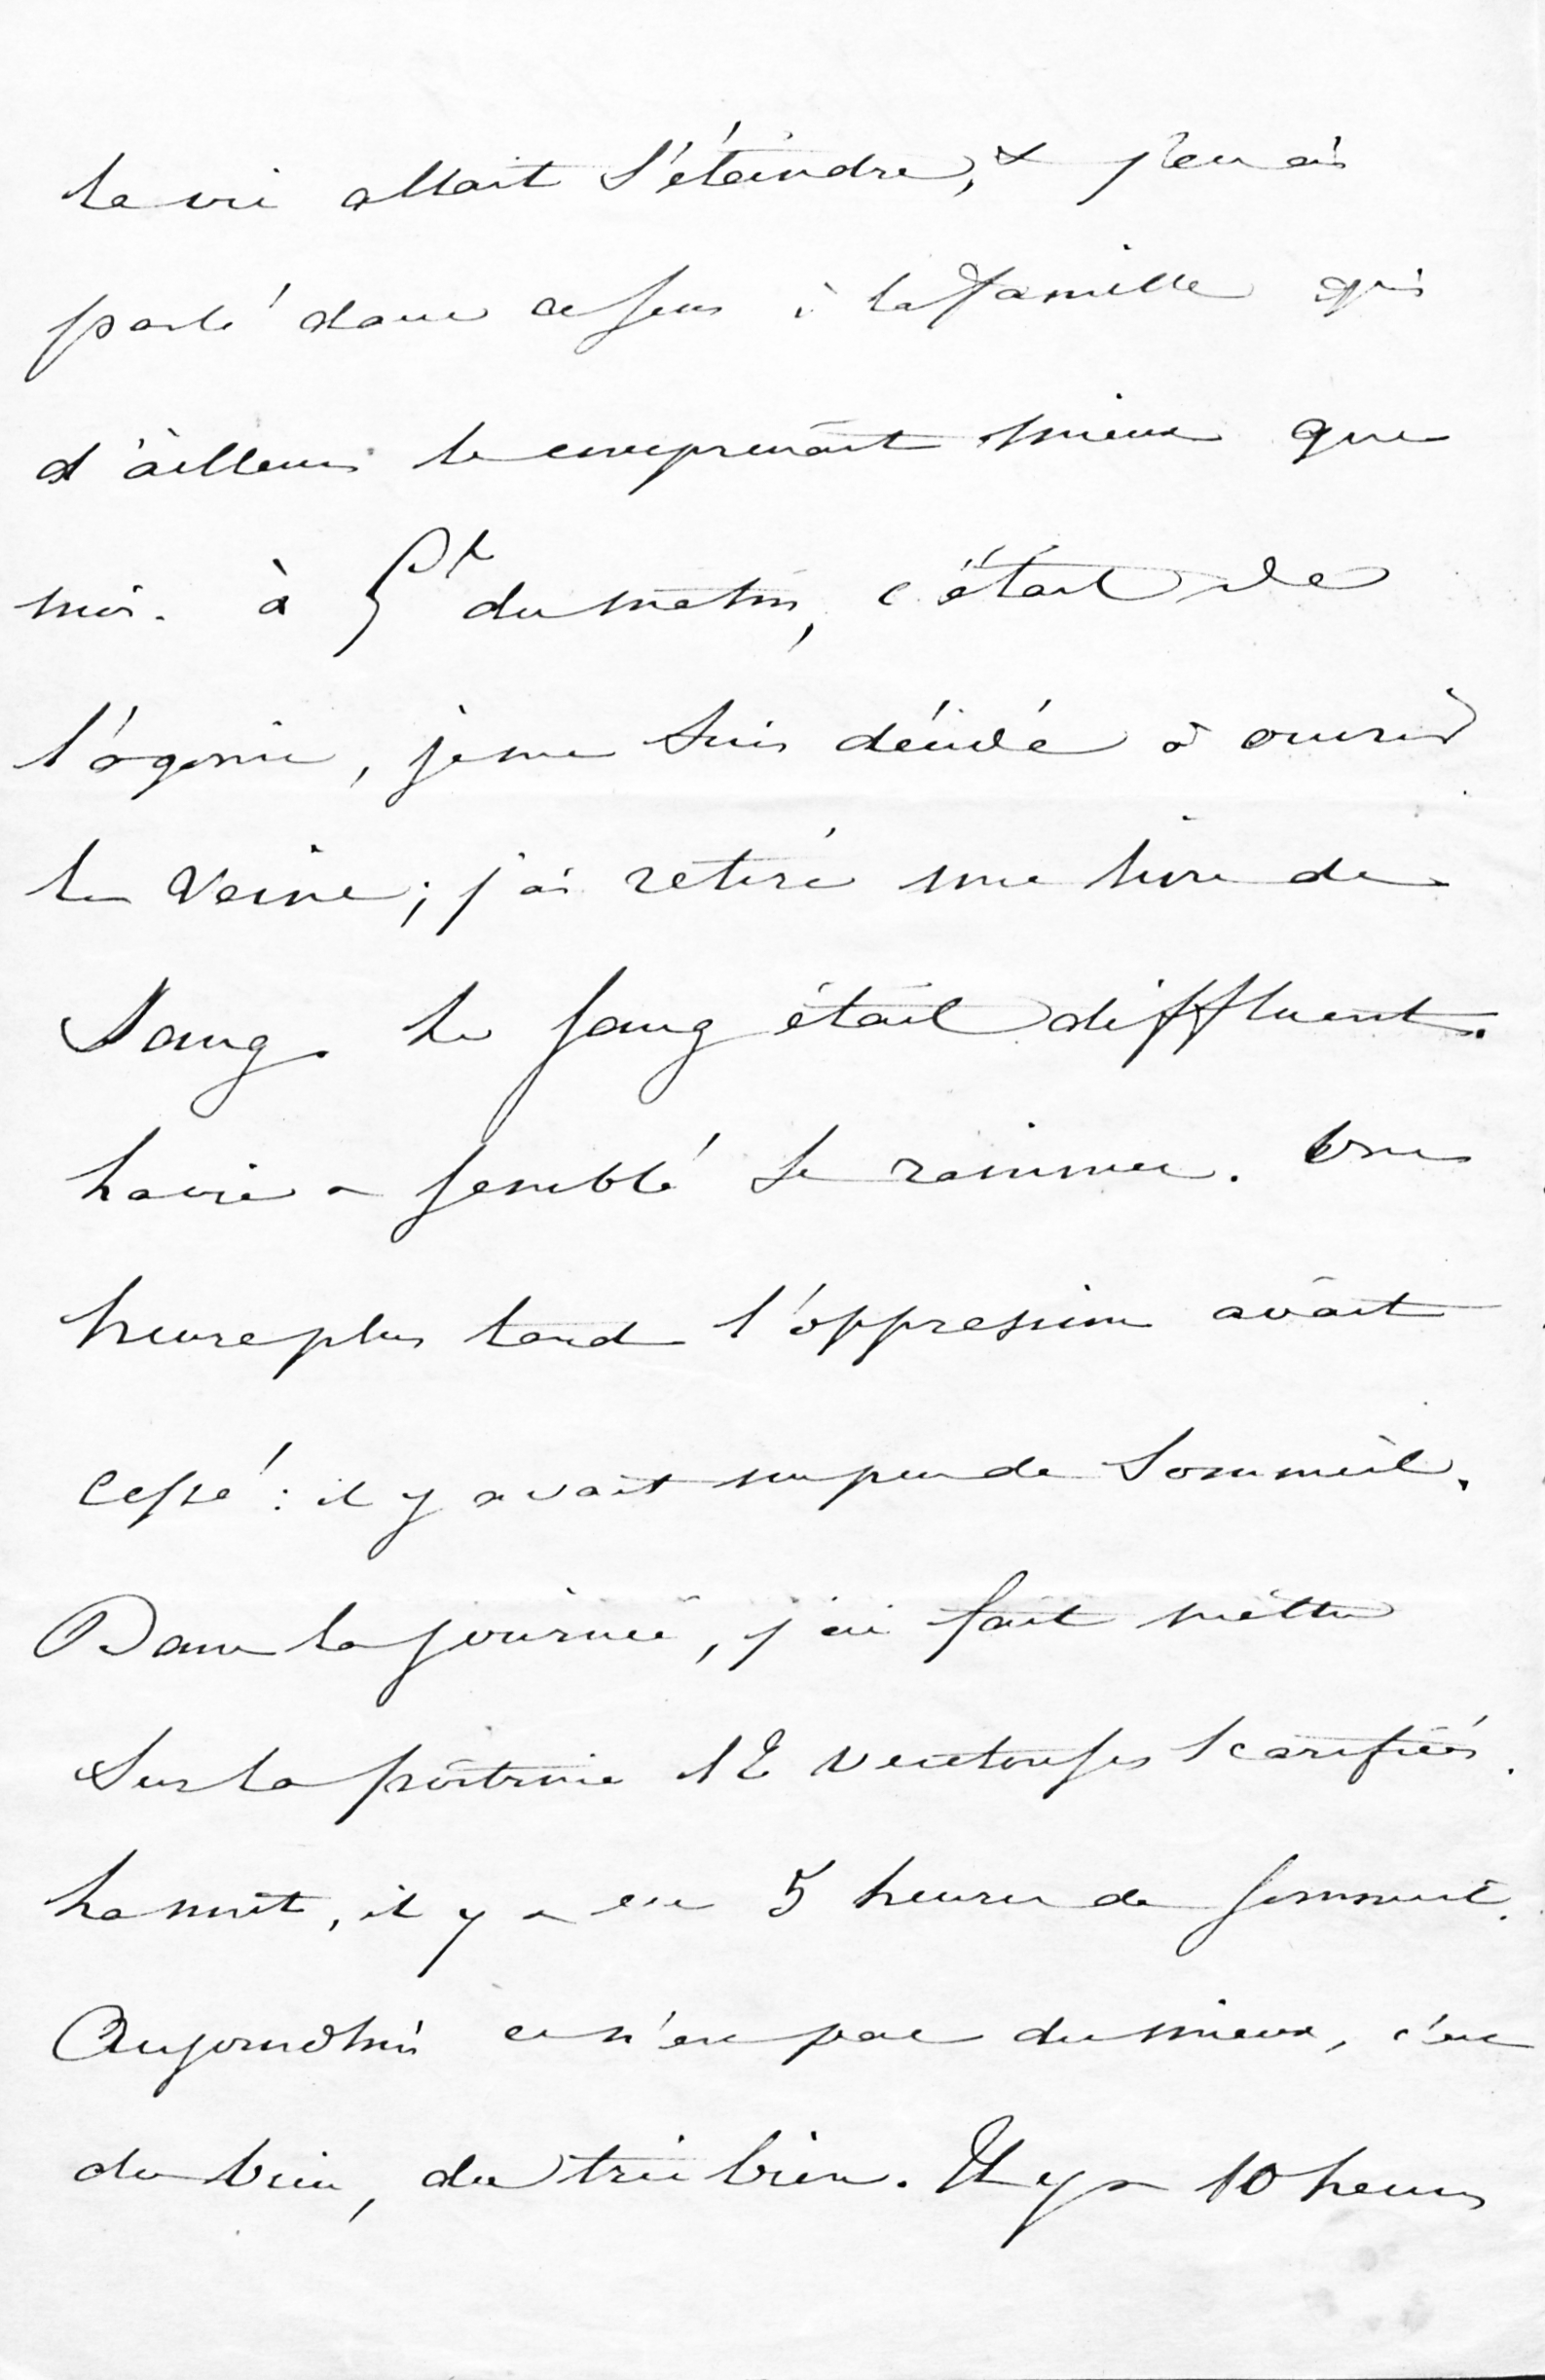 la vie allait s'éteindre, & j'en ai
parlé dans ce sens à la famille qui
d'ailleurs le comprenait mieux que
moi. à 5h du matin, c'était de
l'agonie, je me suis décidé à ouvrir
la veine ; j'ai retiré une livre de
sang. le sang était diffluent.
la vie a semblé se ranimer. Une
heure plus tard l'oppression avait
cessé : il y avait un peu de sommeil.
Dans la journée, j'ai fait mettre
sur la poitrine 12 ventouses scarifiées.
la nuit, il y a eu 5 heures de sommeil.
Aujourd'hui ce n'est pas du mieux, c'est
du bien, du très bien. Il y a 10 heures